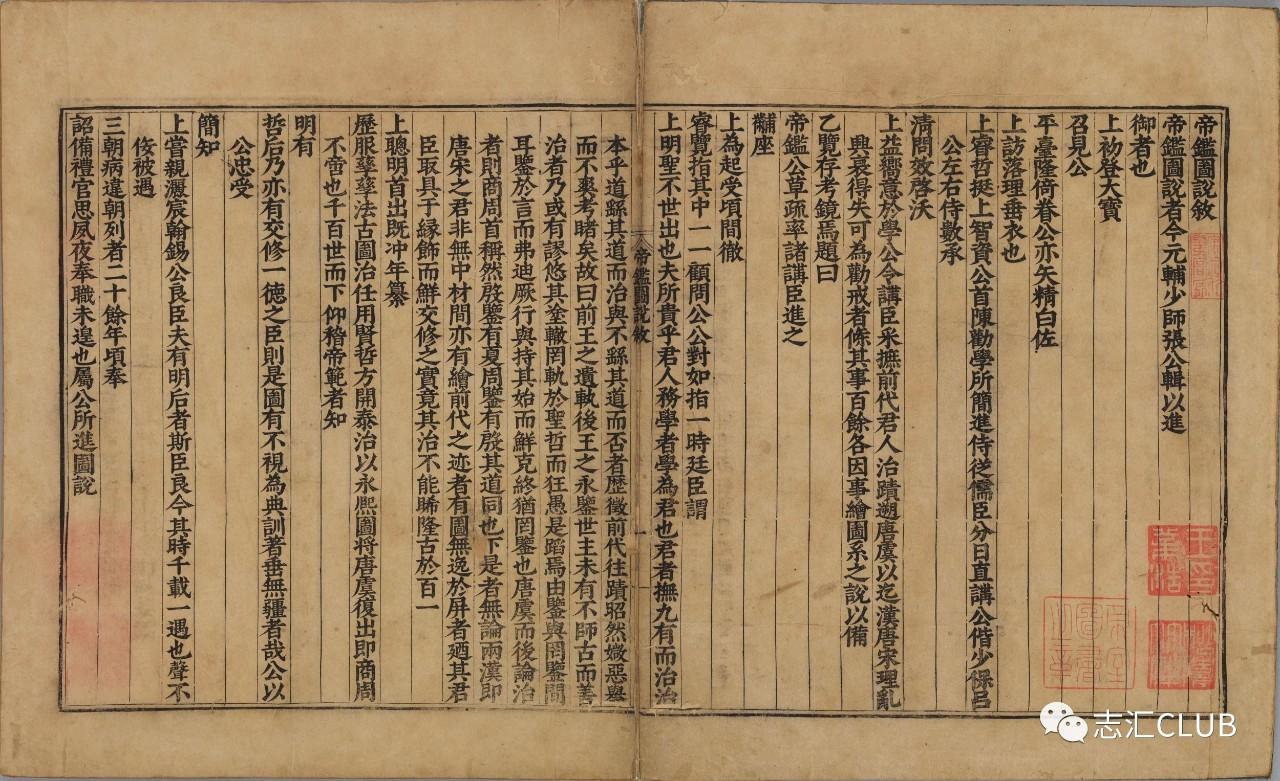 帝鑑圖說敘
帝鑑圖說者今元輔少師張公輯以進
御者也
上初登大寶
召見公
平臺隆倚眷公亦矢精白佐
上訪落理垂衣也
上睿哲挺上智資公首陳勸學所簡進侍從儒臣分日直講公偕少保呂
公左右侍數承
清問效啓沃
上益嚮意於學公令講臣采摭前代君人治蹟遡唐虞以迄漢唐宋理亂
興衰得失可為勸戒者條其事百餘各因事繪圖系之說以備
乙覽存考鏡焉題曰
帝鑑公草疏率諸講臣進之
黼座
上為起受頃間徹
睿覽指其中一一顧問公公對如指一時廷臣謂
上明聖不世出也夫所貴乎君人務學者學為君也君者撫九有而治治
帝鑑圖說敘
一
本乎道繇其道而治與不繇其道而否者歷徵前代往蹟昭然媺惡舉
而不爽考睹矣故曰前王之遺軌後王之永鑒世主未有不師古而善
治者乃或有謬悠其塗轍罔軌於聖哲而狂愚是蹈焉由鑒與罔鑒間
耳鑒於言而弗迪厥行與持其始而鮮克終猶罔鑒也唐虞而後論治
者則商周首稱然殷鑒有夏周鑒有殷其道同也下是者無論兩漢即
唐宋之君非無中材間亦有繪前代之迹者有圖無逸於屏者廼其君
臣取具于緣飾而鮮交修之實竟其治不能睎隆古於百一
上聰明首出既冲年纂
歷服孳孳法古圖治任用賢哲方開泰治以永熙圖將唐虞復出即商周
不啻也千百世而下仰稽帝範者知
明有
哲后乃亦有交修一德之臣則是圖有不視為典訓著垂無疆者哉公以
公忠受
簡知
上嘗親灑宸翰錫公良臣夫有明后者斯臣良今其時千載一遇也聲不
佞被遇
三朝病違朝列者二十餘年頃奉
詔備禮官思夙夜奉職未遑也屬公所進圖說
志汇CLUB